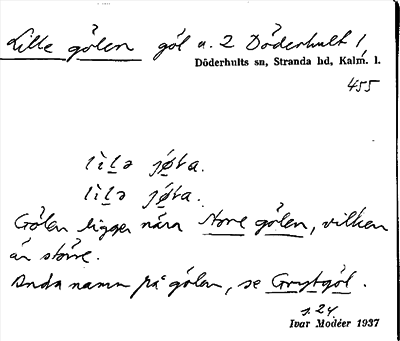 Lille gölen göl u. 2 Döderhult 1
Döderhults sn, Stranda hd, Kalm. l.
455
Gölen ligger nära Norre gölen, vilken
är större.
Andra namn på gölen, se Grytgöl.
s. 24.
Ivar Modéer 1937